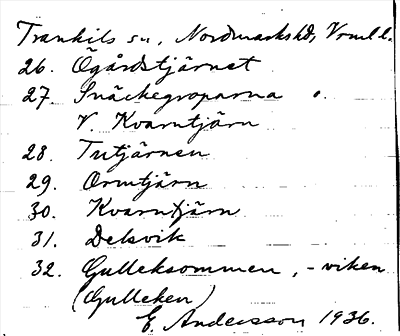 Trankils sn, Nordmarks hd, Vrml.
26. Ögårdstjärnet
27. Snäckegroparna
V. Kvarntjärn
28. Tutjärnen
29. Ormtjärn
30. Kvarntjärn
31. Delsvik
32. Gulleksommen, -viken
(Gulleken)
E. Andersson 1936.